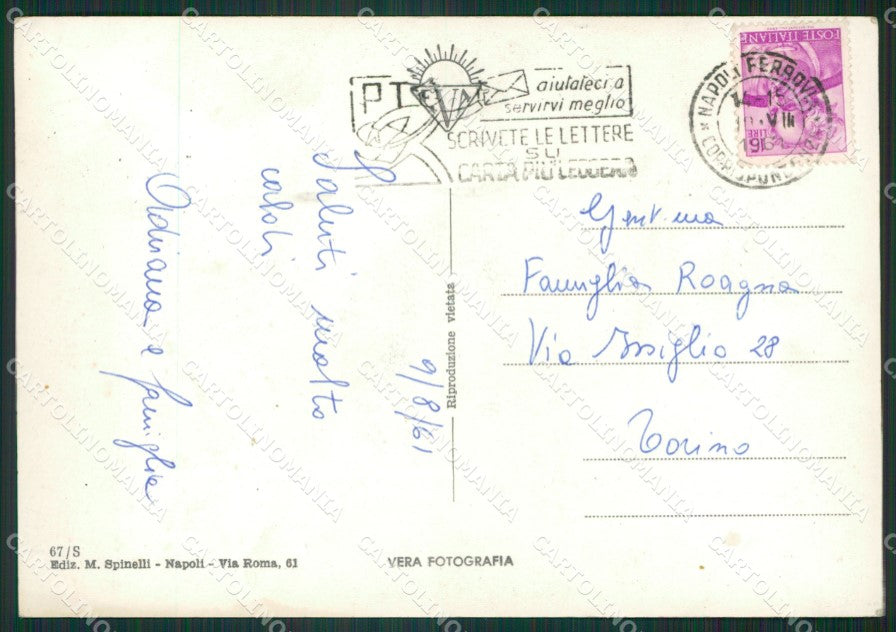 POSTE ITALIANE
LIRE
NAPOLI FERROVIA
VIII
PT
aiutateci a
servirvi meglio
SCRIVETE LE LETTERE
SU
CARTA PIÙ LEGGERA
9/8/61
Saluti molto
caldi
Adriana e famiglia
Riproduzione vietata
Gent.ma
Famiglia Roagna
Via 28
Torino
67/S
Ediz. M. Spinelli - Napoli - Via Roma, 61
VERA FOTOGRAFIA
CARTOLINOMANIA